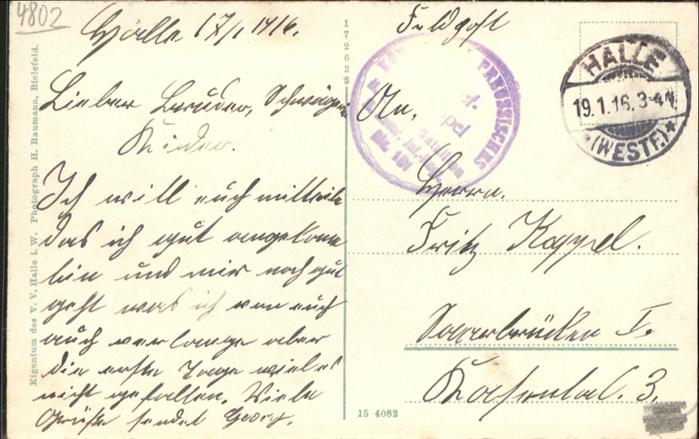 4802
Halle 17/1 1916.
Lieber Bruder, Schwägerin
Kinder.
Ich will euch mitteilen
das ich gut angekomm
bin und mir noch gut
geht was ich von euch
auch verlange aber
die erste Tage will es
nicht gefallen. Viele
Grüße sendet Georg.
Eigentum des V. V. Halle i. W. Photograph H. Baumann, Bielefeld.
Feldpost
An,
Herrn.
Fritz Kappel.
Saarbrücken I.
3.
PREUSSISCHES
HALLE
19.1.16. 3-4N.
(WESTF.)
15 4082